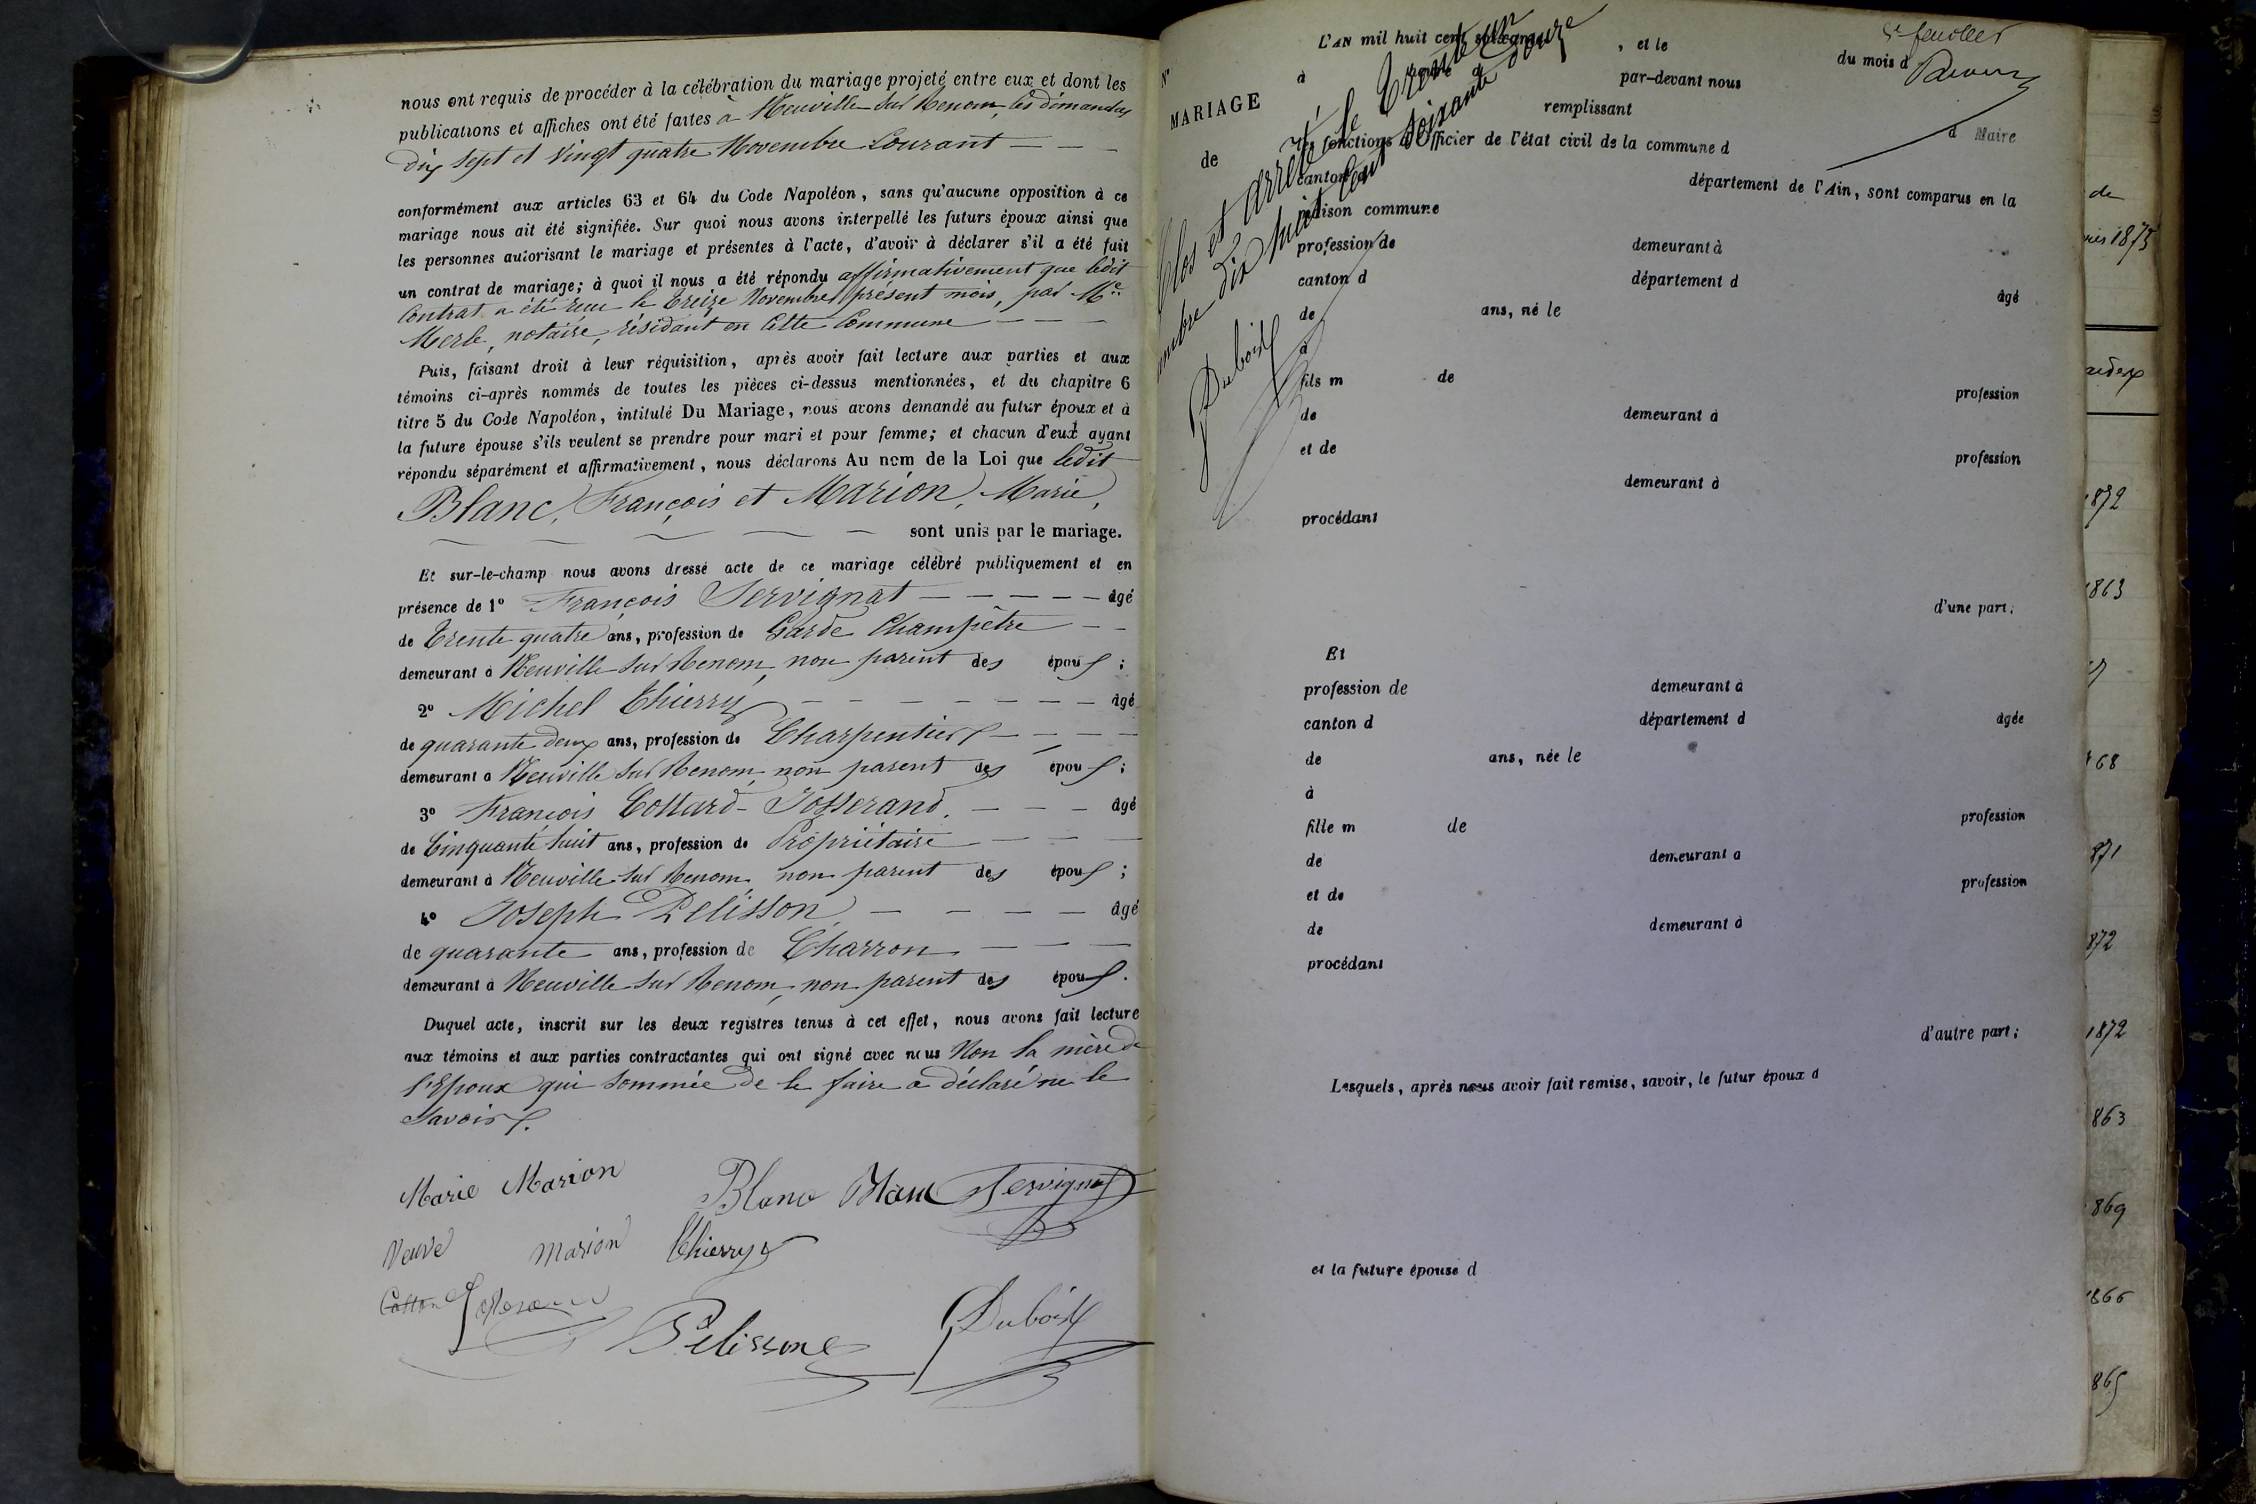 nous ont requis de procéder à la célébration du mariage projeté entre eux et dont les
publications et affiches ont été faites à Neuville sur Renom, les dimanches
dix sept et vingt quatre Novembre Courant — — —
conformément aux articles 63 et 64 du Code Napoléon, sans qu'aucune opposition à ce
mariage nous ait été signifiée. Sur quoi nous avons interpellé les futurs époux ainsi que
les personnes autorisant le mariage et présentes à l'acte, d'avoir à déclarer s'il a été fait
un contrat de mariage; à quoi il nous a été répondu affirmativement que ledit
Contrat a été reçu le treize Novembre présent mois, par Me
Merle, notaire, résidant en cette Commune — — —
Puis, faisant droit à leur réquisition, après avoir fait lecture aux parties et aux
témoins ci-après nommés de toutes les pièces ci-dessus mentionnées, et du chapitre 6
titre 5 du Code Napoléon, intitulé Du Mariage, nous avons demandé au futur époux et à
la future épouse s'ils veulent se prendre pour mari et pour femme; et chacun d'eux ayant
répondu séparément et affirmativement, nous déclarons Au nom de la Loi que ledit
Blanc, François et Marion, Marie,
— — — — — sont unis par le mariage.
Et sur-le-champ nous avons dressé acte de ce mariage célébré publiquement et en
présence de 1° François Servignat — — — — — âgé
de trente quatre ans, profession de Garde Champêtre — —
demeurant à Neuville sur Renom, non parent des époux;
2° Michel Thierry — — — — — — — âgé
de quarante deux ans, profession de Charpentier — — — —
demeurant à Neuville sur Renom, non parent des époux;
3° François Cottard-Josserand. — — — âgé
de Cinquante huit ans, profession de Propriétaire — — —
demeurant à Neuville sur Renom, non parent des époux;
4° Joseph Pélisson, — — — — âgé
de quarante ans, profession de Charron — — —
demeurant à Neuville sur Renom, non parent des époux.
Duquel acte, inscrit sur les deux registres tenus à cet effet, nous avons fait lecture
aux témoins et aux parties contractantes qui ont signé avec nous Non la mère de
l'Epoux qui sommée de le faire a déclaré ne le
savoir.
Marie Marion Blanc Blanc Servignat
Veuve Marion Thierry
Cottard Josserand
Pelisson Dubois
feuillet
N°
MARIAGE
de
Clos et arrêté le trente un
embre dix huit cent soixante douze
Dubois
L'AN mil huit cent soixante , et le du mois d
à heure d par-devant nous
remplissant
les fonctions d'Officier de l'état civil de la commune d d Maire
canton d département de l'Ain, sont comparus en la
maison commune
profession de demeurant à
canton d département d âgé
de ans, né le
à
fils m de profession
de demeurant à
et de profession
demeurant à
procédant
d'une part;
Et
profession de demeurant à
canton d département d âgée
de ans, née le
à
fille m de profession
de demeurant à
et de profession
de demeurant à
procédant
d'autre part;
Lesquels, après nous avoir fait remise, savoir, le futur époux d
et la future épouse d
de
1873
872
863
68
871
872
1872
863
869
866
865